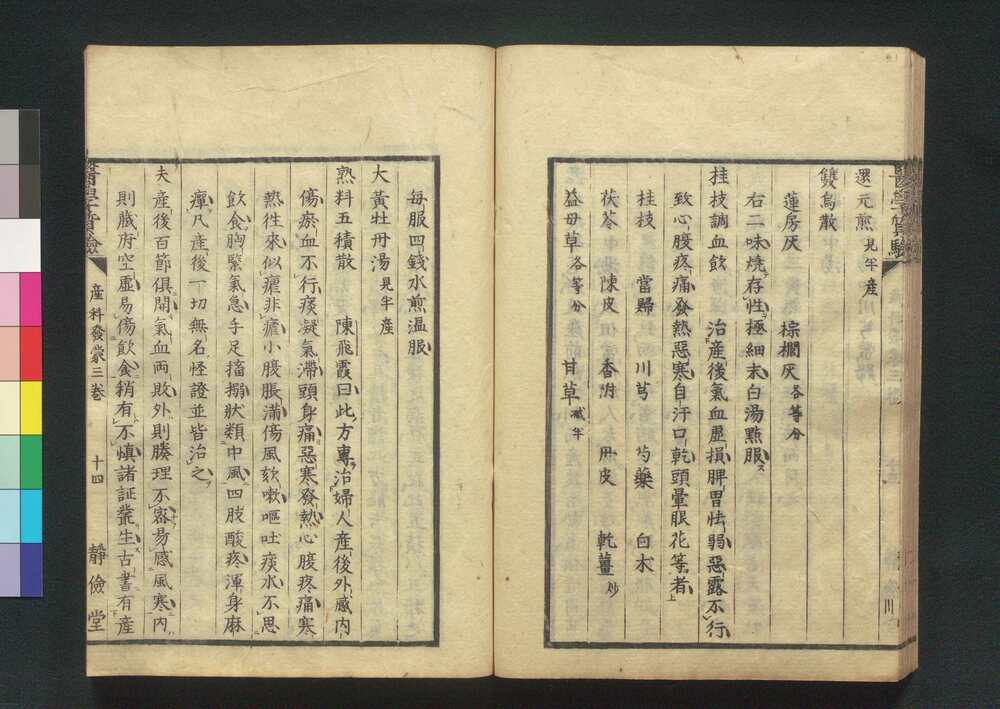 選元煎 見半産
雙烏散
蓮房灰 棕櫚灰 各等分
右二味焼存性極細末白湯點服
桂枝調血飲 治産後氣血虛損脾胃怯弱惡露不行
致心腹疼痛發熱惡寒自汗口乾頭暈眼花等者
桂枝 當歸 川芎 芍藥 白朮
茯苓 陳皮 香附 丹皮 乾薑 炒
益母草 各等分 甘草 減半
醫學質驗
每服四錢水煎温服
大黃牡丹湯 見半産
熟料五積散 陳飛霞曰此方專治婦人産後外感内
傷瘀血不行痰凝氣滯頭身痛惡寒發熱心腹疼痛寒
熱徃來似瘧非瘧小腹脹滿傷風欬嗽嘔吐痰水不思
飲食胸緊氣急手足搐搦狀類中風四肢酸疼渾身麻
痺凡産後一切無名怪證並皆治之
夫産後百節俱開氣血両敗外則腠理不密易感風寒内
則臓府空虛易傷飲食稍有不慎諸証叢生古書有産
醫學質驗 産科發蒙三卷 十四 靜儉堂